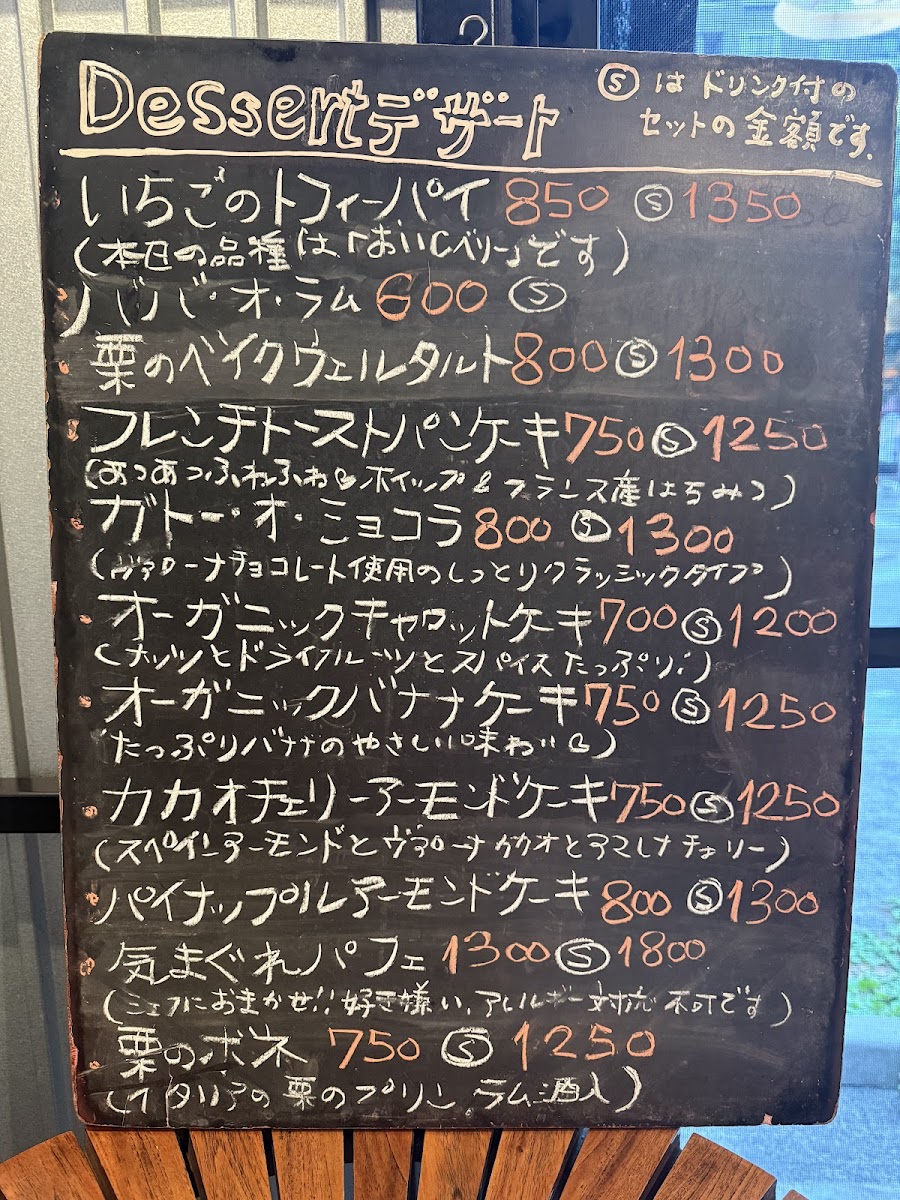 Dessertデザート
Ⓢはドリンク付の
セットの金額です.
いちごのトフィーパイ 850 Ⓢ1350
(本日の品種は「おいCベリー」です)
ババ・オ・ラム 600 Ⓢ
栗のベイクウェルタルト 800 Ⓢ1300
フレンチトーストパンケーキ 750 Ⓢ1250
(あつあつふわふわ♡ホイップ&フランス産はちみつ)
ガトー・オ・ショコラ 800 Ⓢ1300
(ヴァローナチョコレート使用のしっとりクラッシックタイプ)
オーガニックキャロットケーキ 700 Ⓢ1200
(ナッツとドライフルーツとスパイスたっぷり!)
オーガニックバナナケーキ 750 Ⓢ1250
たっぷりバナナのやさしい味わい♡)
カカオチェリーアーモンドケーキ 750 Ⓢ1250
(スペインアーモンドとヴァローナカカオとアマレナチェリー)
パイナップルアーモンドケーキ 800 Ⓢ1300
気まぐれパフェ 1300 Ⓢ1800
(シェフにおまかせ!!好き嫌い、アレルギー対応不可です)
栗のボネ 750 Ⓢ1250
(イタリアの栗のプリン ラム酒入)